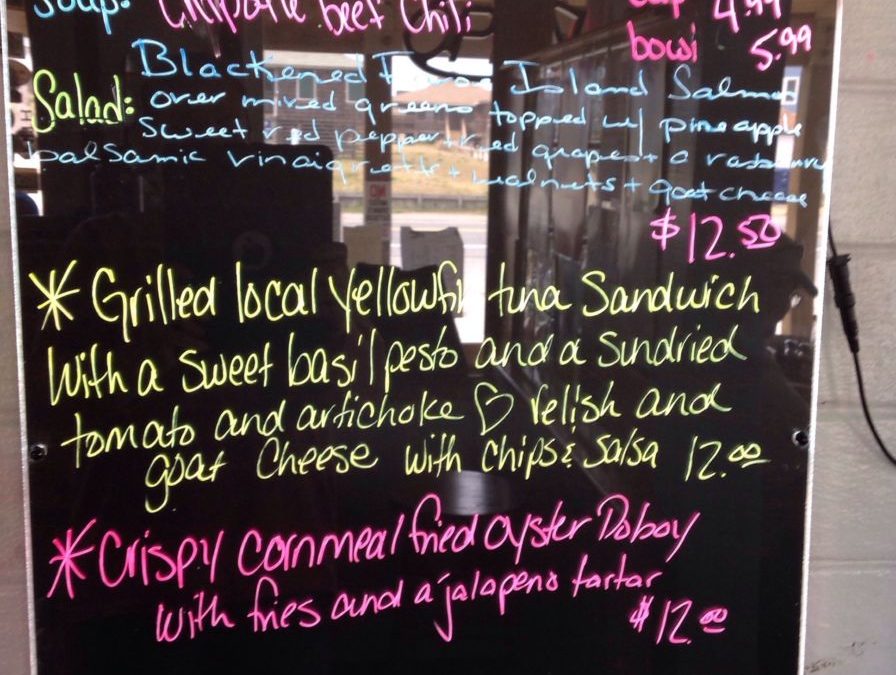 Soup: Chipotle beef Chili cup 4.99
bowl 5.99
Salad: Blackened Faroe Island Salmon
over mixed greens topped w/ pineapple
sweet red pepper + red grapes + a raspberry
balsamic vinaigrette + walnuts + goat cheese
$12.50
* Grilled local yellowfin tuna Sandwich
with a sweet basil pesto and a Sundried
tomato and artichoke relish and
goat cheese with chips & salsa 12.00
* Crispy cornmeal fried oyster Poboy
with fries and a jalapeno tartar
$12.00